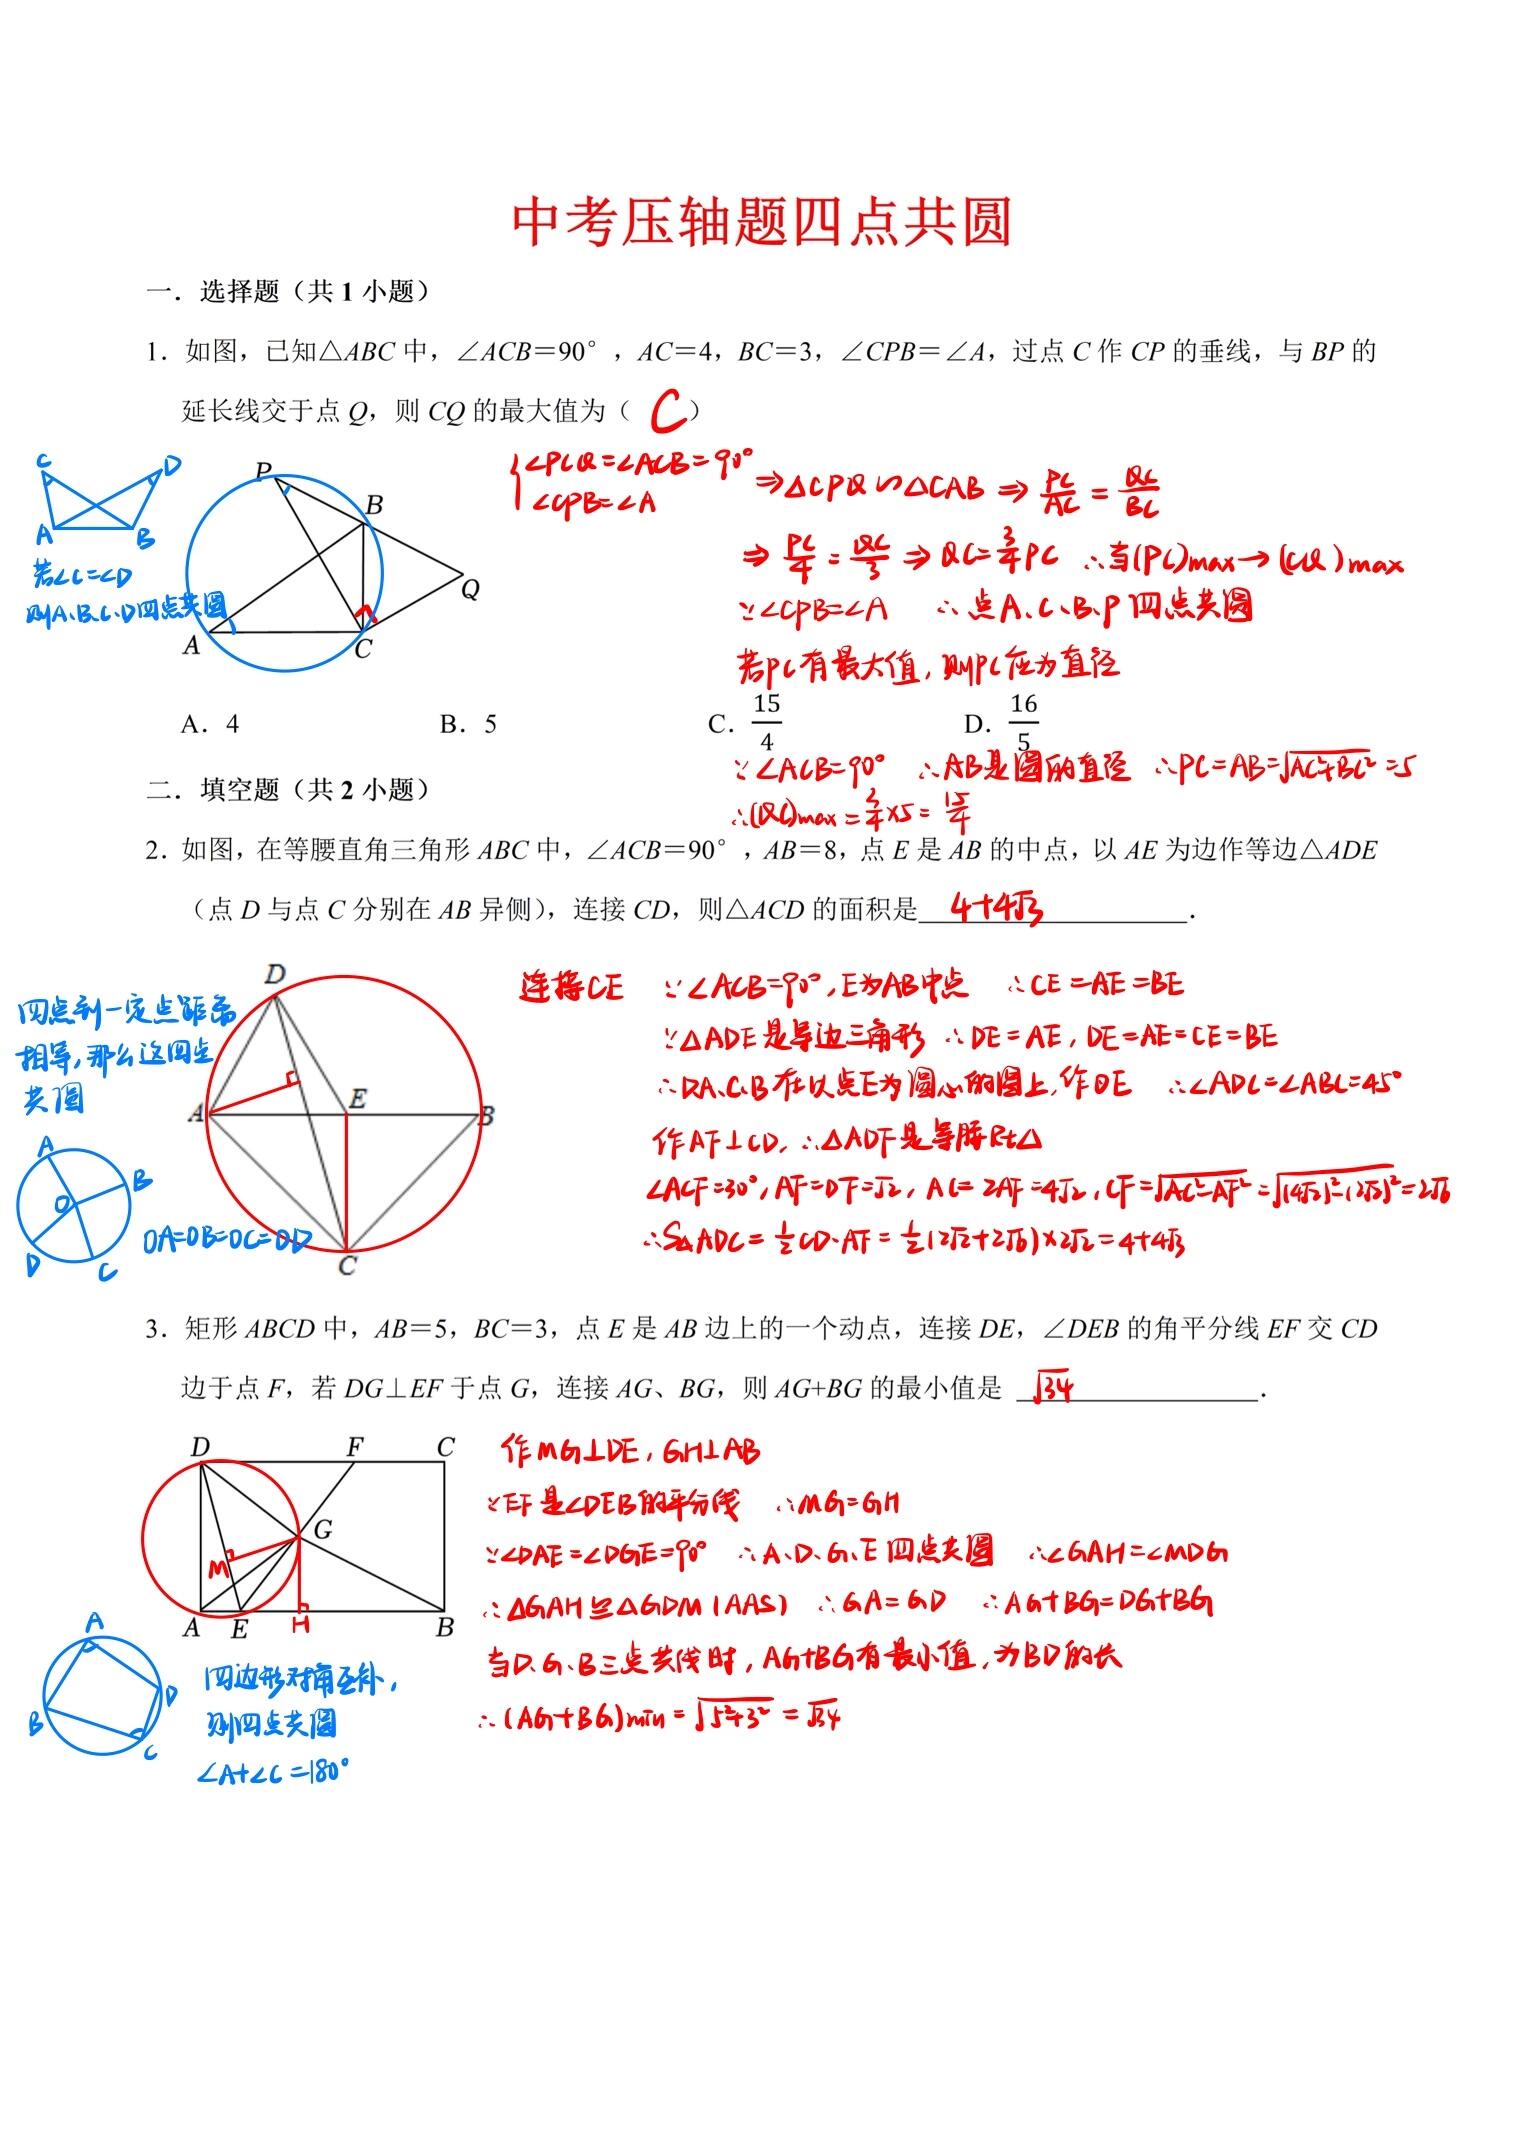 中考压轴题四点共圆
一．选择题（共 1 小题）
1．如图，已知△ABC 中，∠ACB＝90°，AC＝4，BC＝3，∠CPB＝∠A，过点 C 作 CP 的垂线，与 BP 的
延长线交于点 Q，则 CQ 的最大值为（ C ）
C D
A B
若∠C=∠D
则A、B、C、D四点共圆
P
B
Q
A C
{∠PCQ=∠ACB=90° ∠CPB=∠A ⇒△CPQ∽△CAB ⇒ PC/AC = QC/BC
⇒ PC/4 = QC/3 ⇒ QC=3/4PC ∴当(PC)max→(CQ)max
∵∠CPB=∠A ∴点A、C、B、P四点共圆
若PC有最大值，则PC应为直径
A．4 B．5 C．15/4 D．16/5
∵∠ACB=90° ∴AB是圆的直径 ∴PC=AB=√AC²+BC²=5
∴(QC)max=3/4×5=15/4
二．填空题（共 2 小题）
2．如图，在等腰直角三角形 ABC 中，∠ACB＝90°，AB＝8，点 E 是 AB 的中点，以 AE 为边作等边△ADE
（点 D 与点 C 分别在 AB 异侧），连接 CD，则△ACD 的面积是 4+4√3 ．
四点到一定点距离
相等，那么这四点
共圆
A
B
O
D C
OA=OB=OC=OD
D
A E B
C
连接CE ∵∠ACB=90°，E为AB中点 ∴CE=AE=BE
∵△ADE是等边三角形 ∴DE=AE，DE=AE=CE=BE
∴D、A、C、B在以点E为圆心的圆上，作DE ∴∠ADC=∠ABC=45°
作AF⊥CD，∴△ADF是等腰Rt△
∠ACF=30°，AF=DF=√2，AC=2AF=4√2，CF=√AC²-AF²=√(4√2)²-(2√2)²=2√6
∴S△ADC=1/2CD·AF=1/2(2√2+2√6)×2√2=4+4√3
3．矩形 ABCD 中，AB＝5，BC＝3，点 E 是 AB 边上的一个动点，连接 DE，∠DEB 的角平分线 EF 交 CD
边于点 F，若 DG⊥EF 于点 G，连接 AG、BG，则 AG+BG 的最小值是 √34 ．
D F C
G
M
A E H B
作MG⊥DE，GH⊥AB
∵EF是∠DEB的平分线 ∴MG=GH
∵∠DAE=∠DGE=90° ∴A、D、G、E四点共圆 ∴∠GAH=∠MDG
∴△GAH≌△GDM(AAS) ∴GA=GD ∴AG+BG=DG+BG
当D、G、B三点共线时，AG+BG有最小值，为BD的长
∴(AG+BG)min=√5²+3²=√34
A
D
B
C
四边形对角互补，
则四点共圆
∠A+∠C=180°